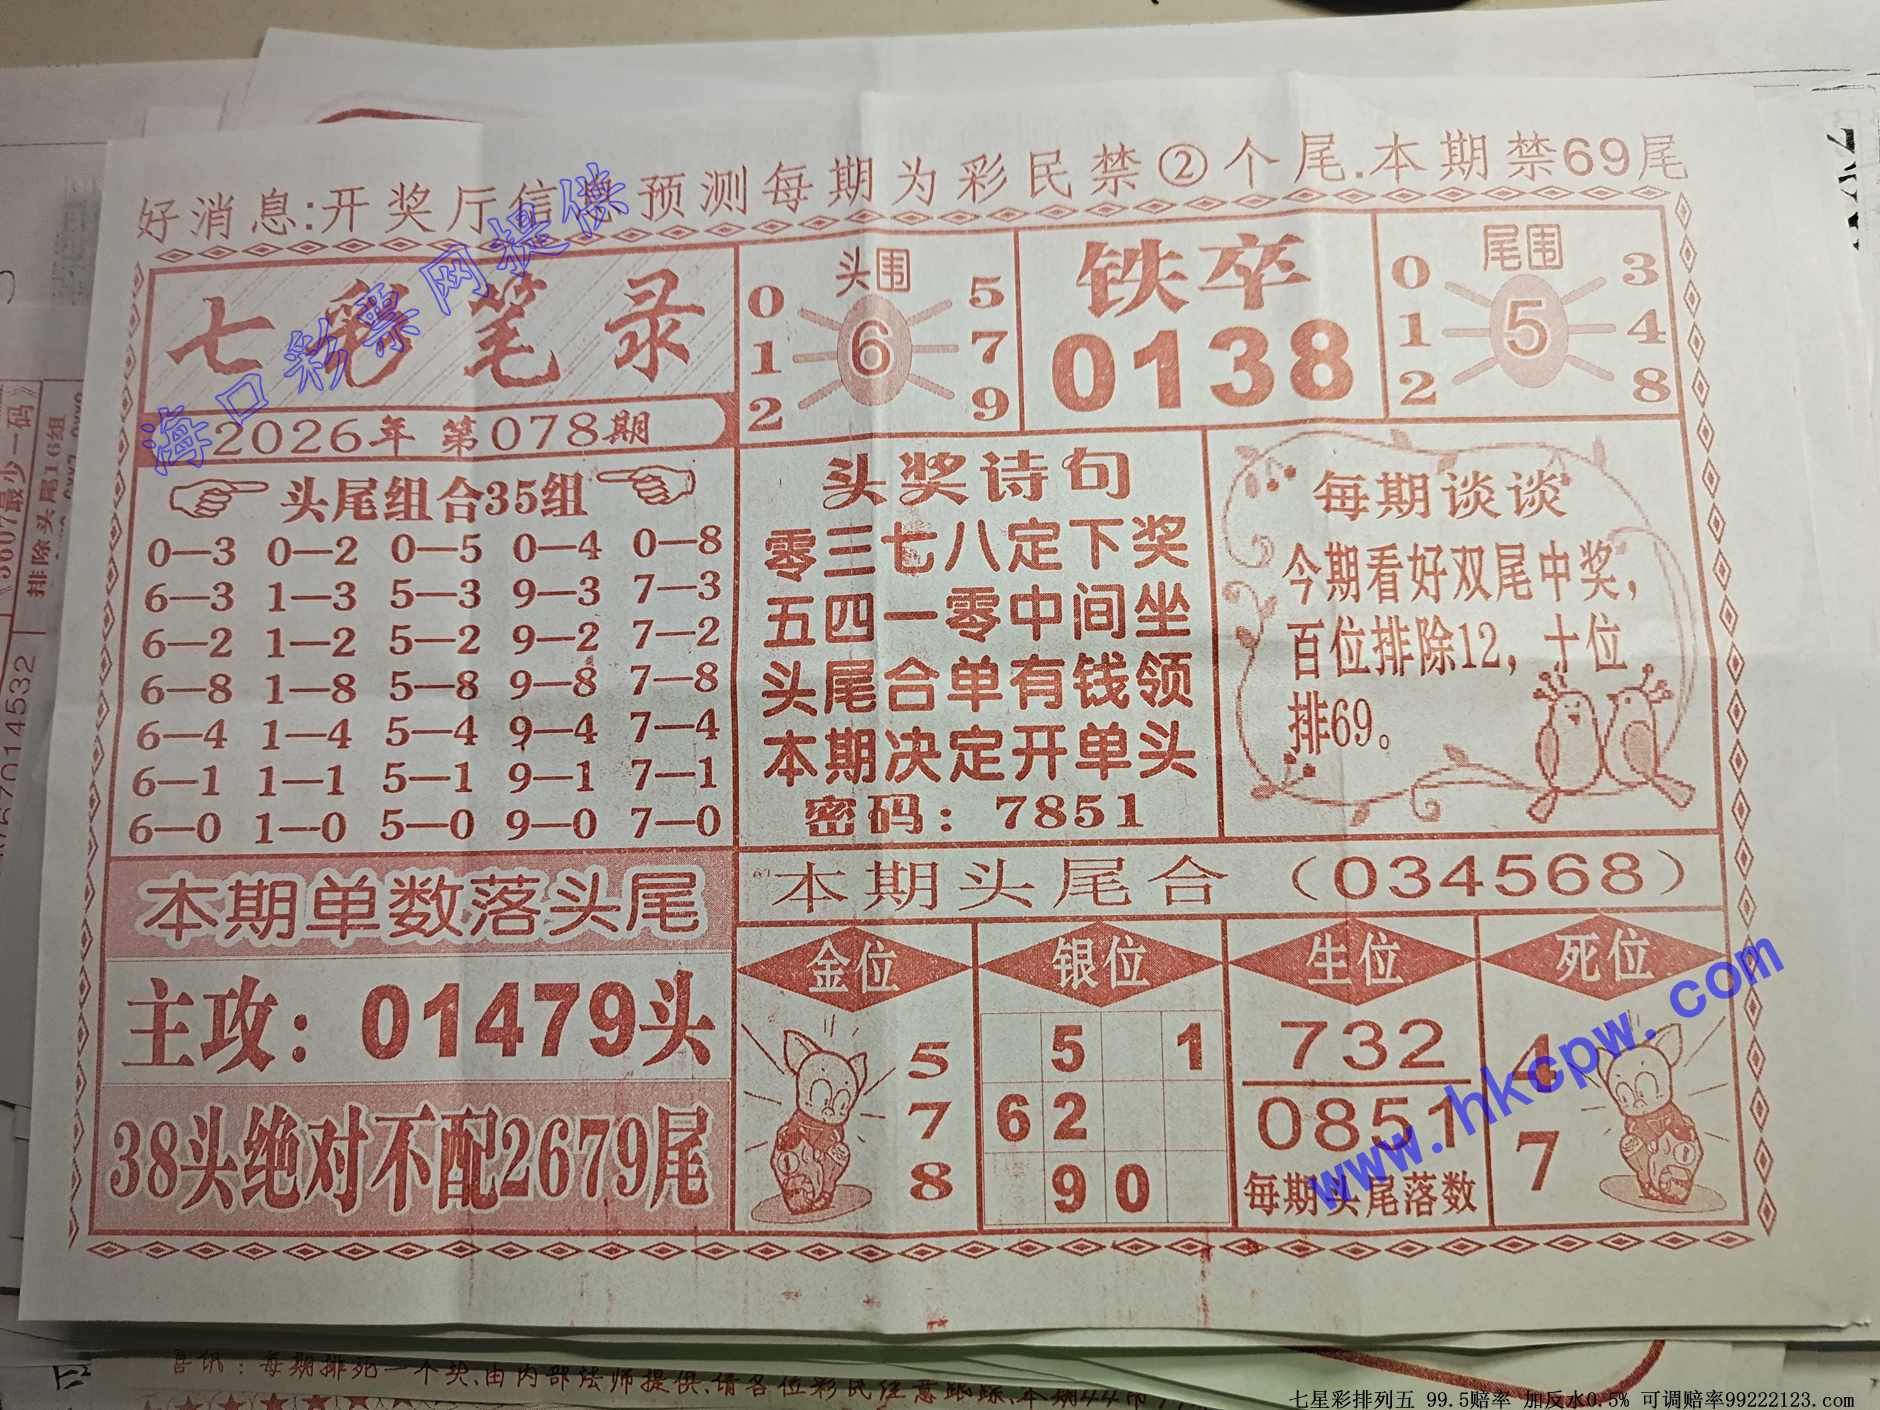 好消息:开奖厅信息预测每期为彩民禁②个尾.本期禁69尾
七彩笔录
2026年 第078期
头围
0 5
1 6 7
2 9
铁卒
0138
尾围
0 3
1 5 4
2 8
头尾组合35组
0—3 0—2 0—5 0—4 0—8
6—3 1—3 5—3 9—3 7—3
6—2 1—2 5—2 9—2 7—2
6—8 1—8 5—8 9—8 7—8
6—4 1—4 5—4 9—4 7—4
6—1 1—1 5—1 9—1 7—1
6—0 1—0 5—0 9—0 7—0
头奖诗句
零三七八定下奖
五四一零中间坐
头尾合单有钱领
本期决定开单头
密码：7851
每期谈谈
今期看好双尾中奖，
百位排除12，十位
排69。
本期单数落头尾
主攻：01479头
38头绝对不配2679尾
本期头尾合（034568）
金位
5
7
8
银位
5 1
6 2
9 0
生位
732
0851
每期头尾落数
死位
4
7
海口彩票网提供
www.hkcpw.com
《5607最少一码》
排除头尾16组
喜讯：每期排死一个奖.由内部法师提供.请各位彩民注意跟踪.本期44
七星彩排列五 99.5赔率 加反水0.5% 可调赔率99222123.com